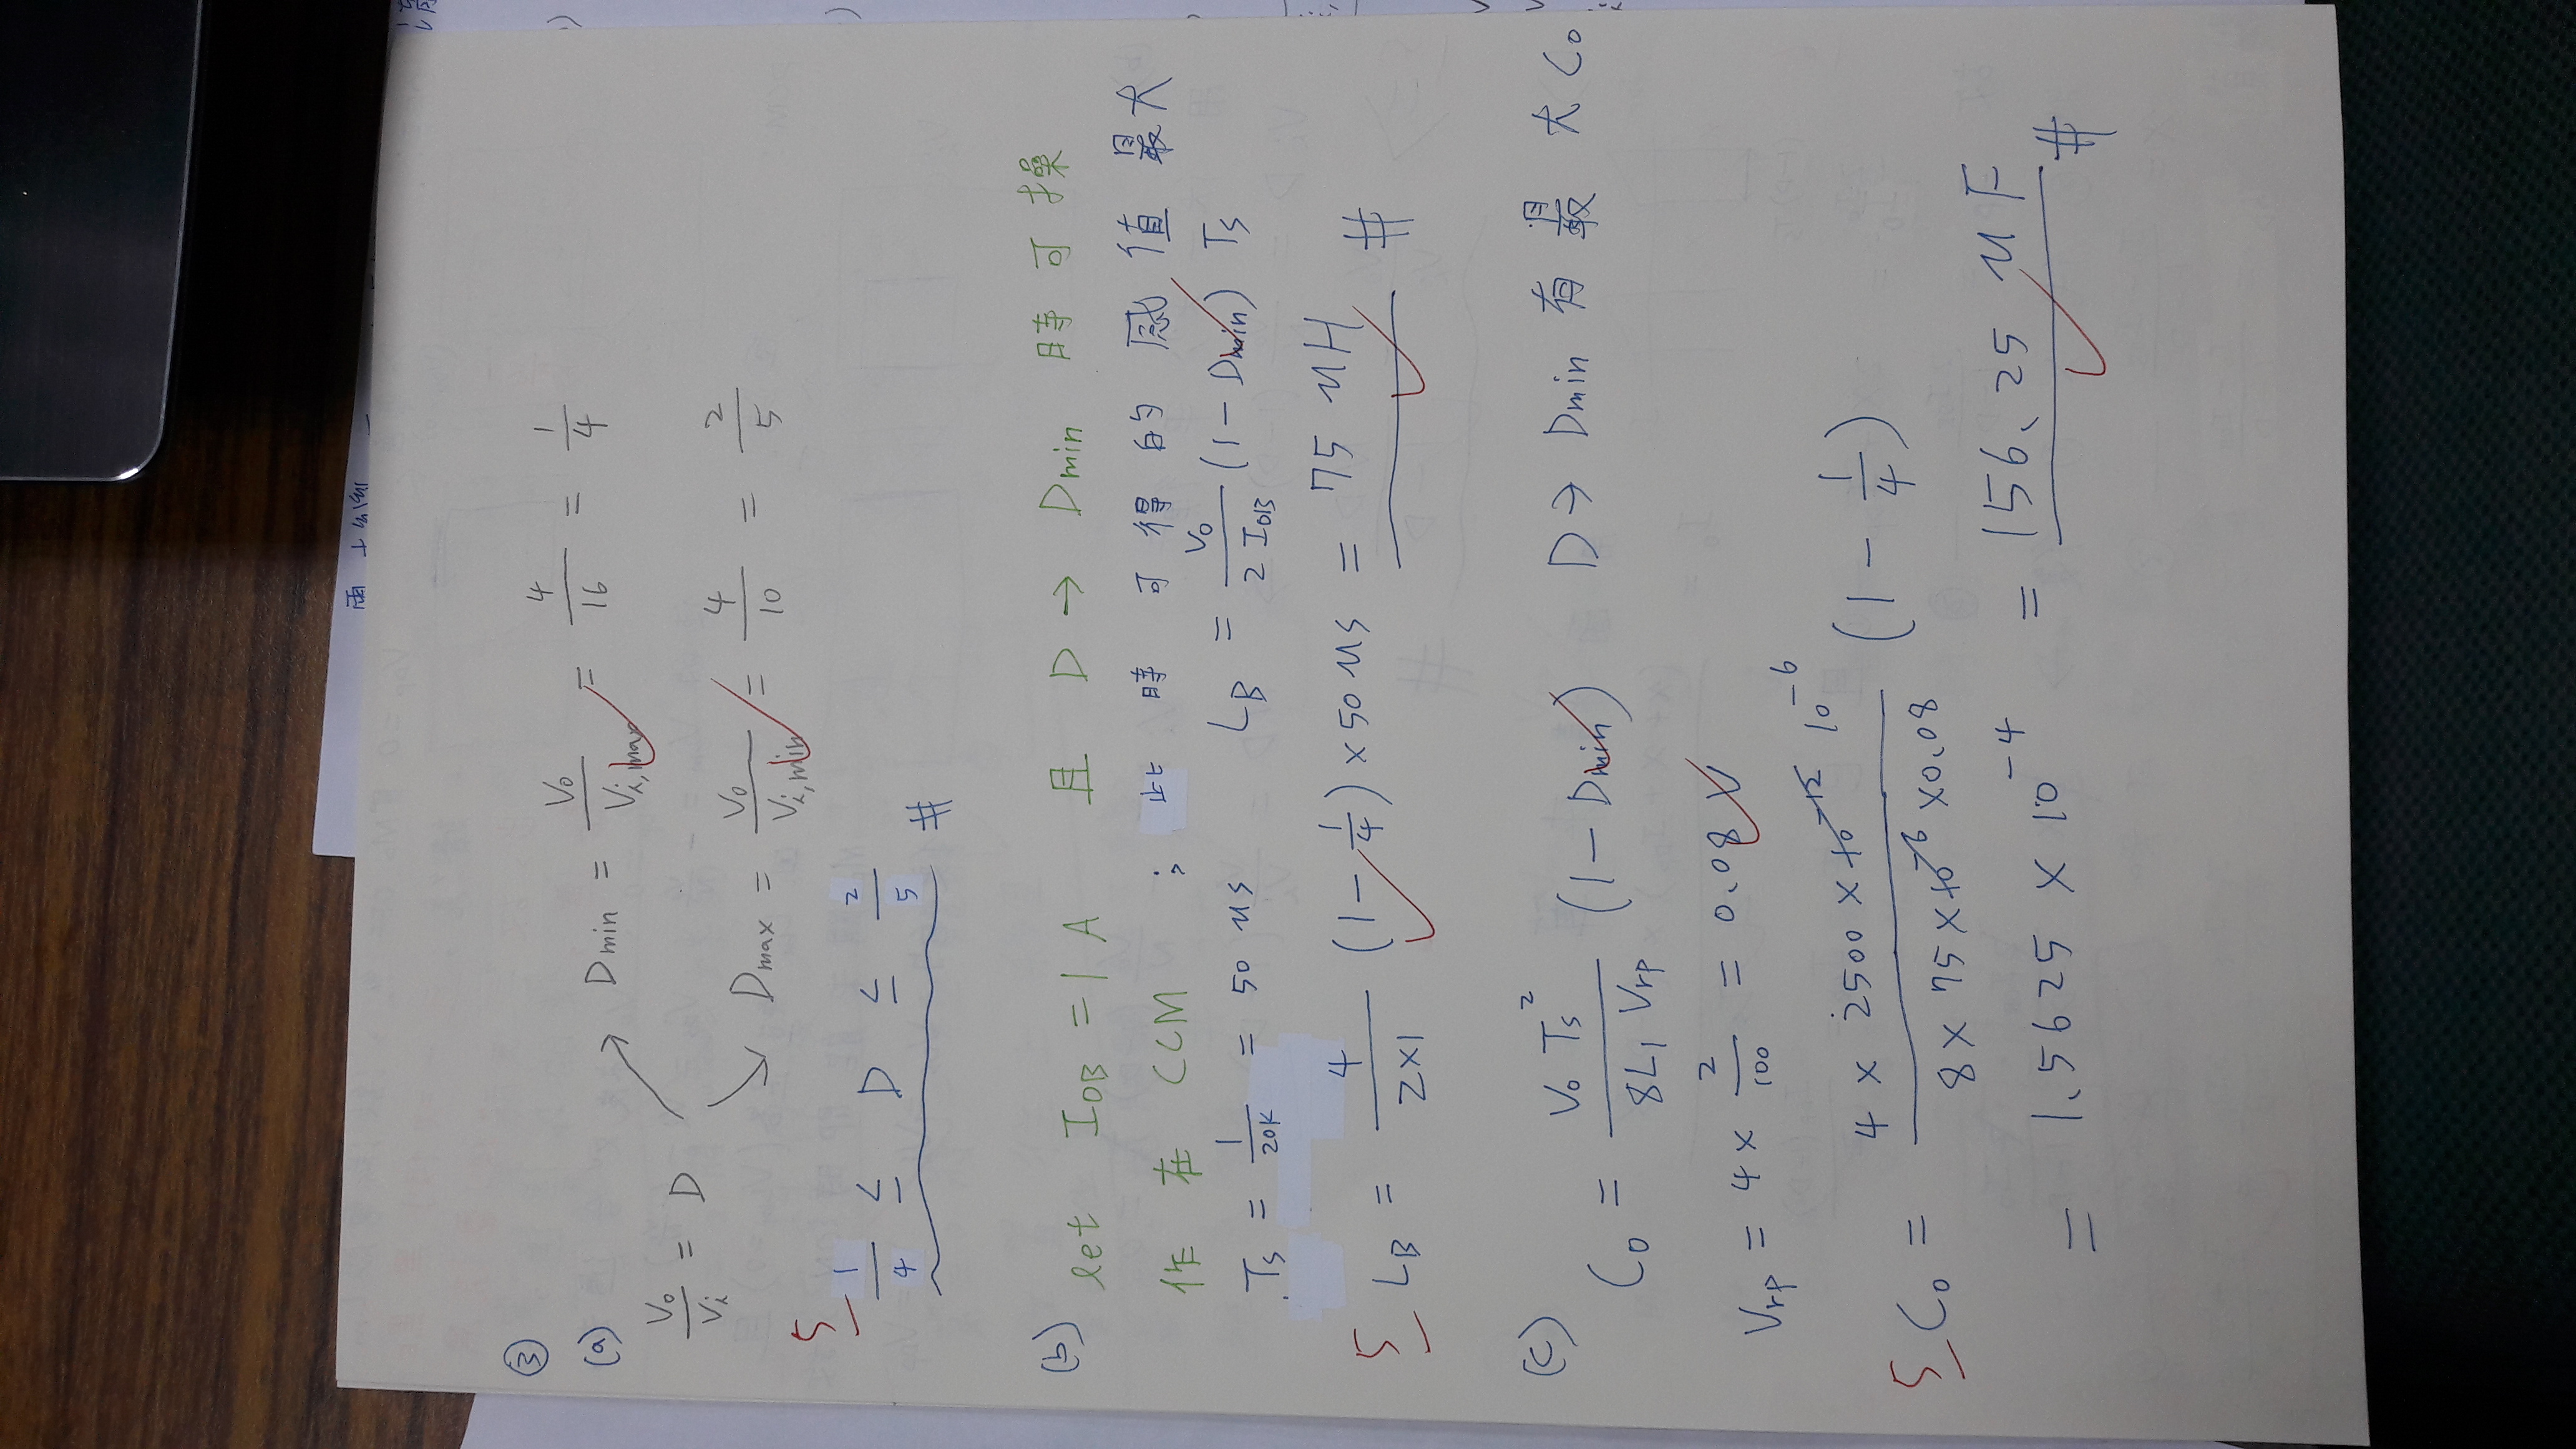 ③
(a)
Vo/Vi = D
Dmin = Vo/Vi,max = 4/16 = 1/4
Dmax = Vo/Vi,min = 4/10 = 2/5
5
1/4 ≤ D ≤ 2/5 #
(b) let IOB = 1 A 且 D → Dmin 時 可 操
作 在 CCM ; 此 時 可 得 的 感 值 最大
Ts = 1/20K = 50 us LB = Vo/2 IOB (1 - Dmin) Ts
5 LB = 4/2×1 (1 - 1/4) × 50 us = 75 uH #
(c)
Co = Vo Ts²/8L1 Vrp (1 - Dmin) D → Dmin 有 最 大 Co
Vrp = 4 × 2/100 = 0.08 V
5 Co = 4 × 2500 × 10⁻¹² 10⁻⁶/8 × 75 × 10⁻⁶ × 0.08 (1 - 1/4)
= 1.5625 × 10⁻⁴ = 156.25 uF #